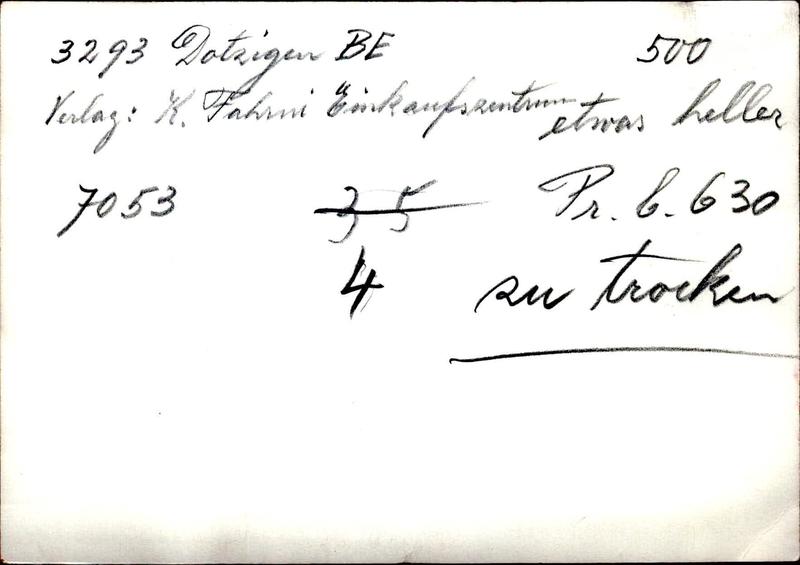 3293 Dotzigen BE 500
Verlag: K. Fahrni Einkaufszentrum etwas heller
7053 35 Pr. b. 630
4 zu trocken